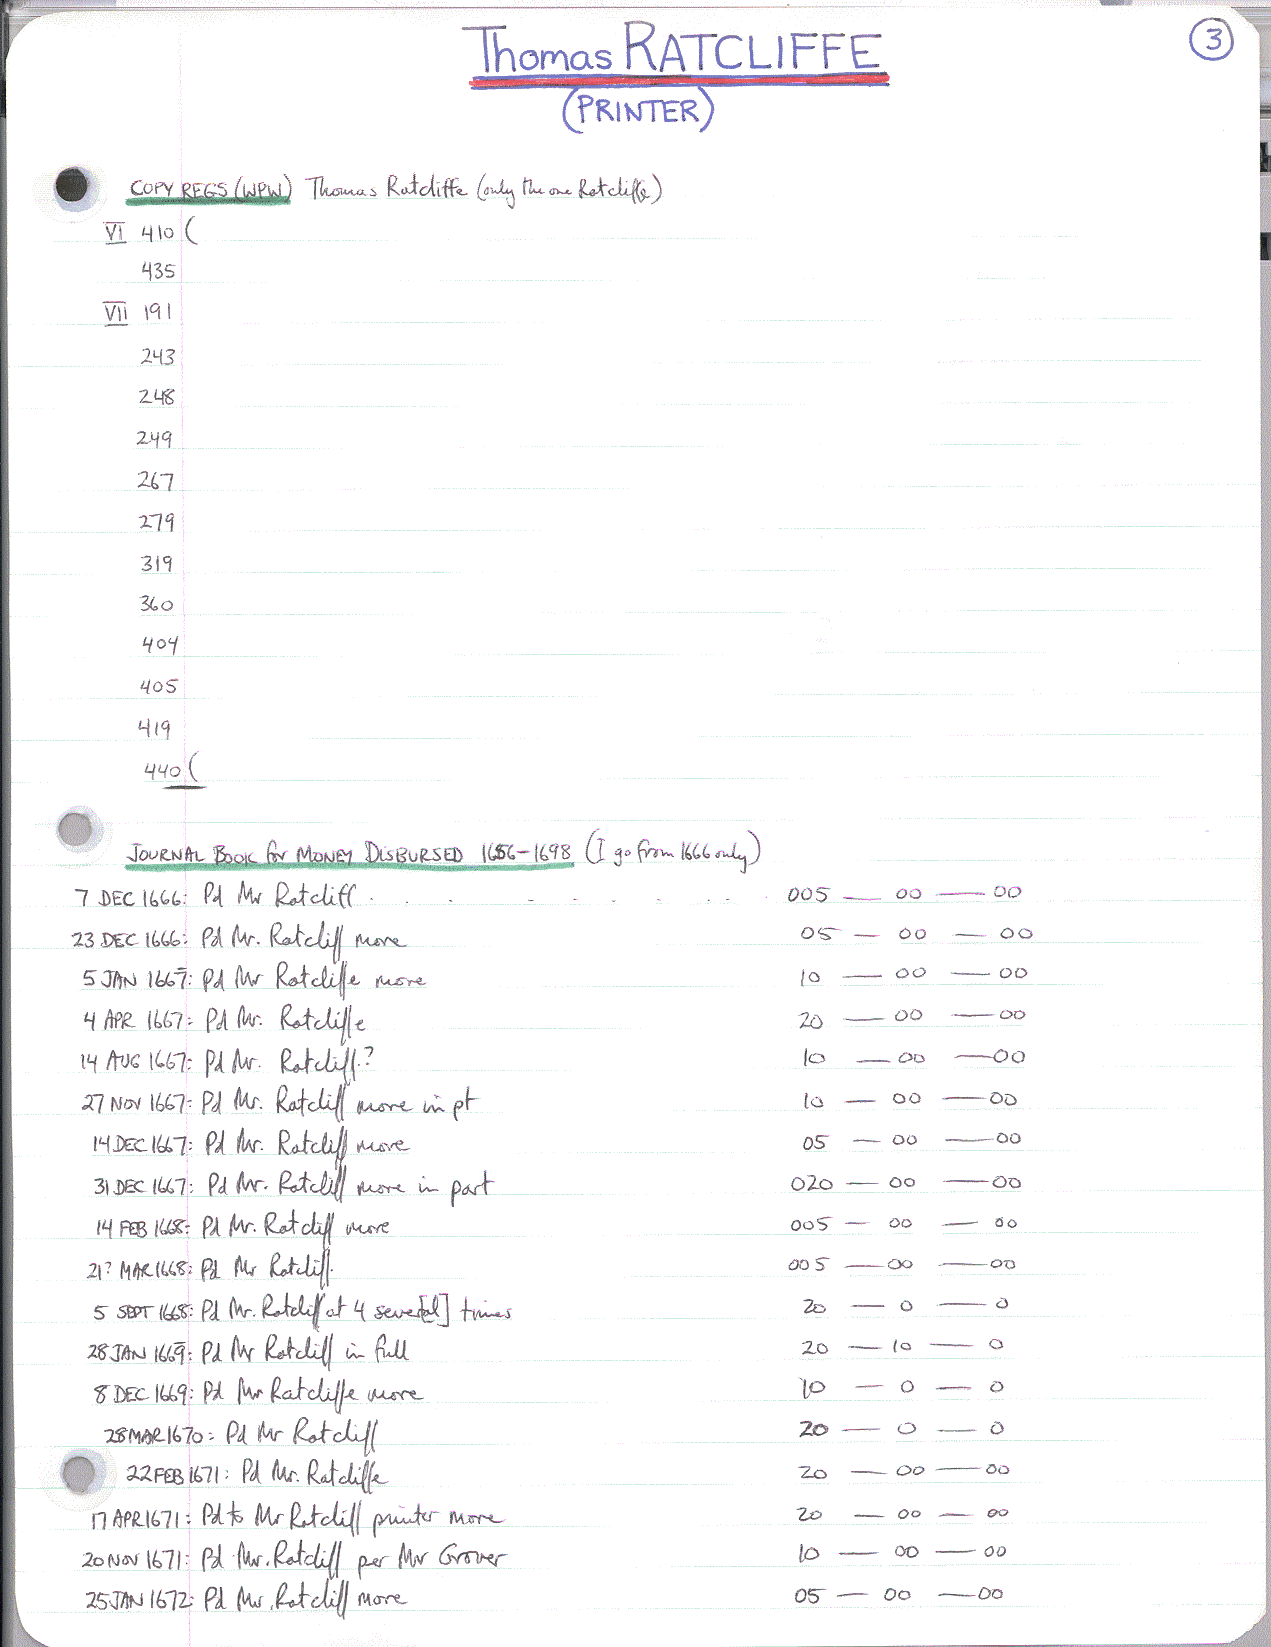 Thomas RATCLIFFE
3
(PRINTER)
COPY REGS (WPW) Thomas Ratcliffe (only the one Ratcliffe)
VI 410 (
435
VII 191
243
248
249
267
279
319
360
404
405
419
440 (
JOURNAL BOOK for MONEY DISBURSED 1656–1698 (I go from 1666 only)
7 DEC 1666: Pd Mr Ratcliff . . . . . . . . . 005 — 00 — 00
23 DEC 1666: Pd Mr. Ratcliff more 05 — 00 — 00
5 JAN 1667: Pd Mr Ratcliffe more 10 — 00 — 00
4 APR 1667: Pd Mr. Ratcliffe 20 — 00 — 00
14 AUG 1667: Pd Mr. Ratcliff.? 10 — 00 — 00
27 NOV 1667: Pd Mr. Ratcliff more in pt 10 — 00 — 00
14 DEC 1667: Pd Mr. Ratcliff more 05 — 00 — 00
31 DEC 1667: Pd Mr. Ratcliff more in part 020 — 00 — 00
14 FEB 1668: Pd Mr. Ratcliff more 005 — 00 — 00
21? MAR 1668: Pd Mr Ratcliff. 005 — 00 — 00
5 SEPT 1668: Pd Mr. Ratcliff at 4 seve[al] times 20 — 0 — 0
28 JAN 1669: Pd Mr Ratcliff in full 20 — 10 — 0
8 DEC 1669: Pd Mr Ratcliffe more 10 — 0 — 0
28 MAR 1670: Pd Mr Ratcliff 20 — 0 — 0
22 FEB 1671: Pd Mr. Ratcliffe 20 — 00 — 00
17 APR 1671: Pd to Mr Ratcliff printer more 20 — 00 — 00
20 NOV 1671: Pd Mr. Ratcliff per Mr Grover 10 — 00 — 00
25 JAN 1672: Pd Mr. Ratcliff more 05 — 00 — 00